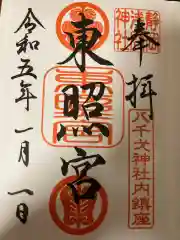 奉拝
八千戈神社内鎮座
東照宮
令和五年一月一日